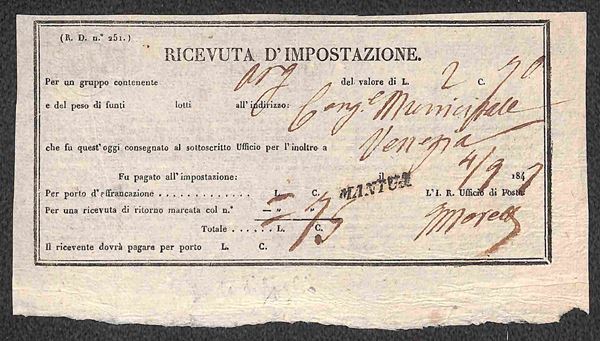 (R. D. n.° 251.)
RICEVUTA D'IMPOSTAZIONE.
Per un gruppo contenente arg del valore di L. 2 C. 70
e del peso di funti lotti all'indirizzo: Cong.e Municipale
che fu quest'oggi consegnato al sottoscritto Ufficio per l'inoltro a Venezia
Fu pagato all'impostazione: il 4/9 184
Per porto d'effrancazione . . . . L. C. MANTOVA L'I. R. Ufficio di Posta
Per una ricevuta di ritorno marcata col n.° — " "
Totale . . . . . L. C. 75
Il ricevente dovrà pagare per porto L. C.